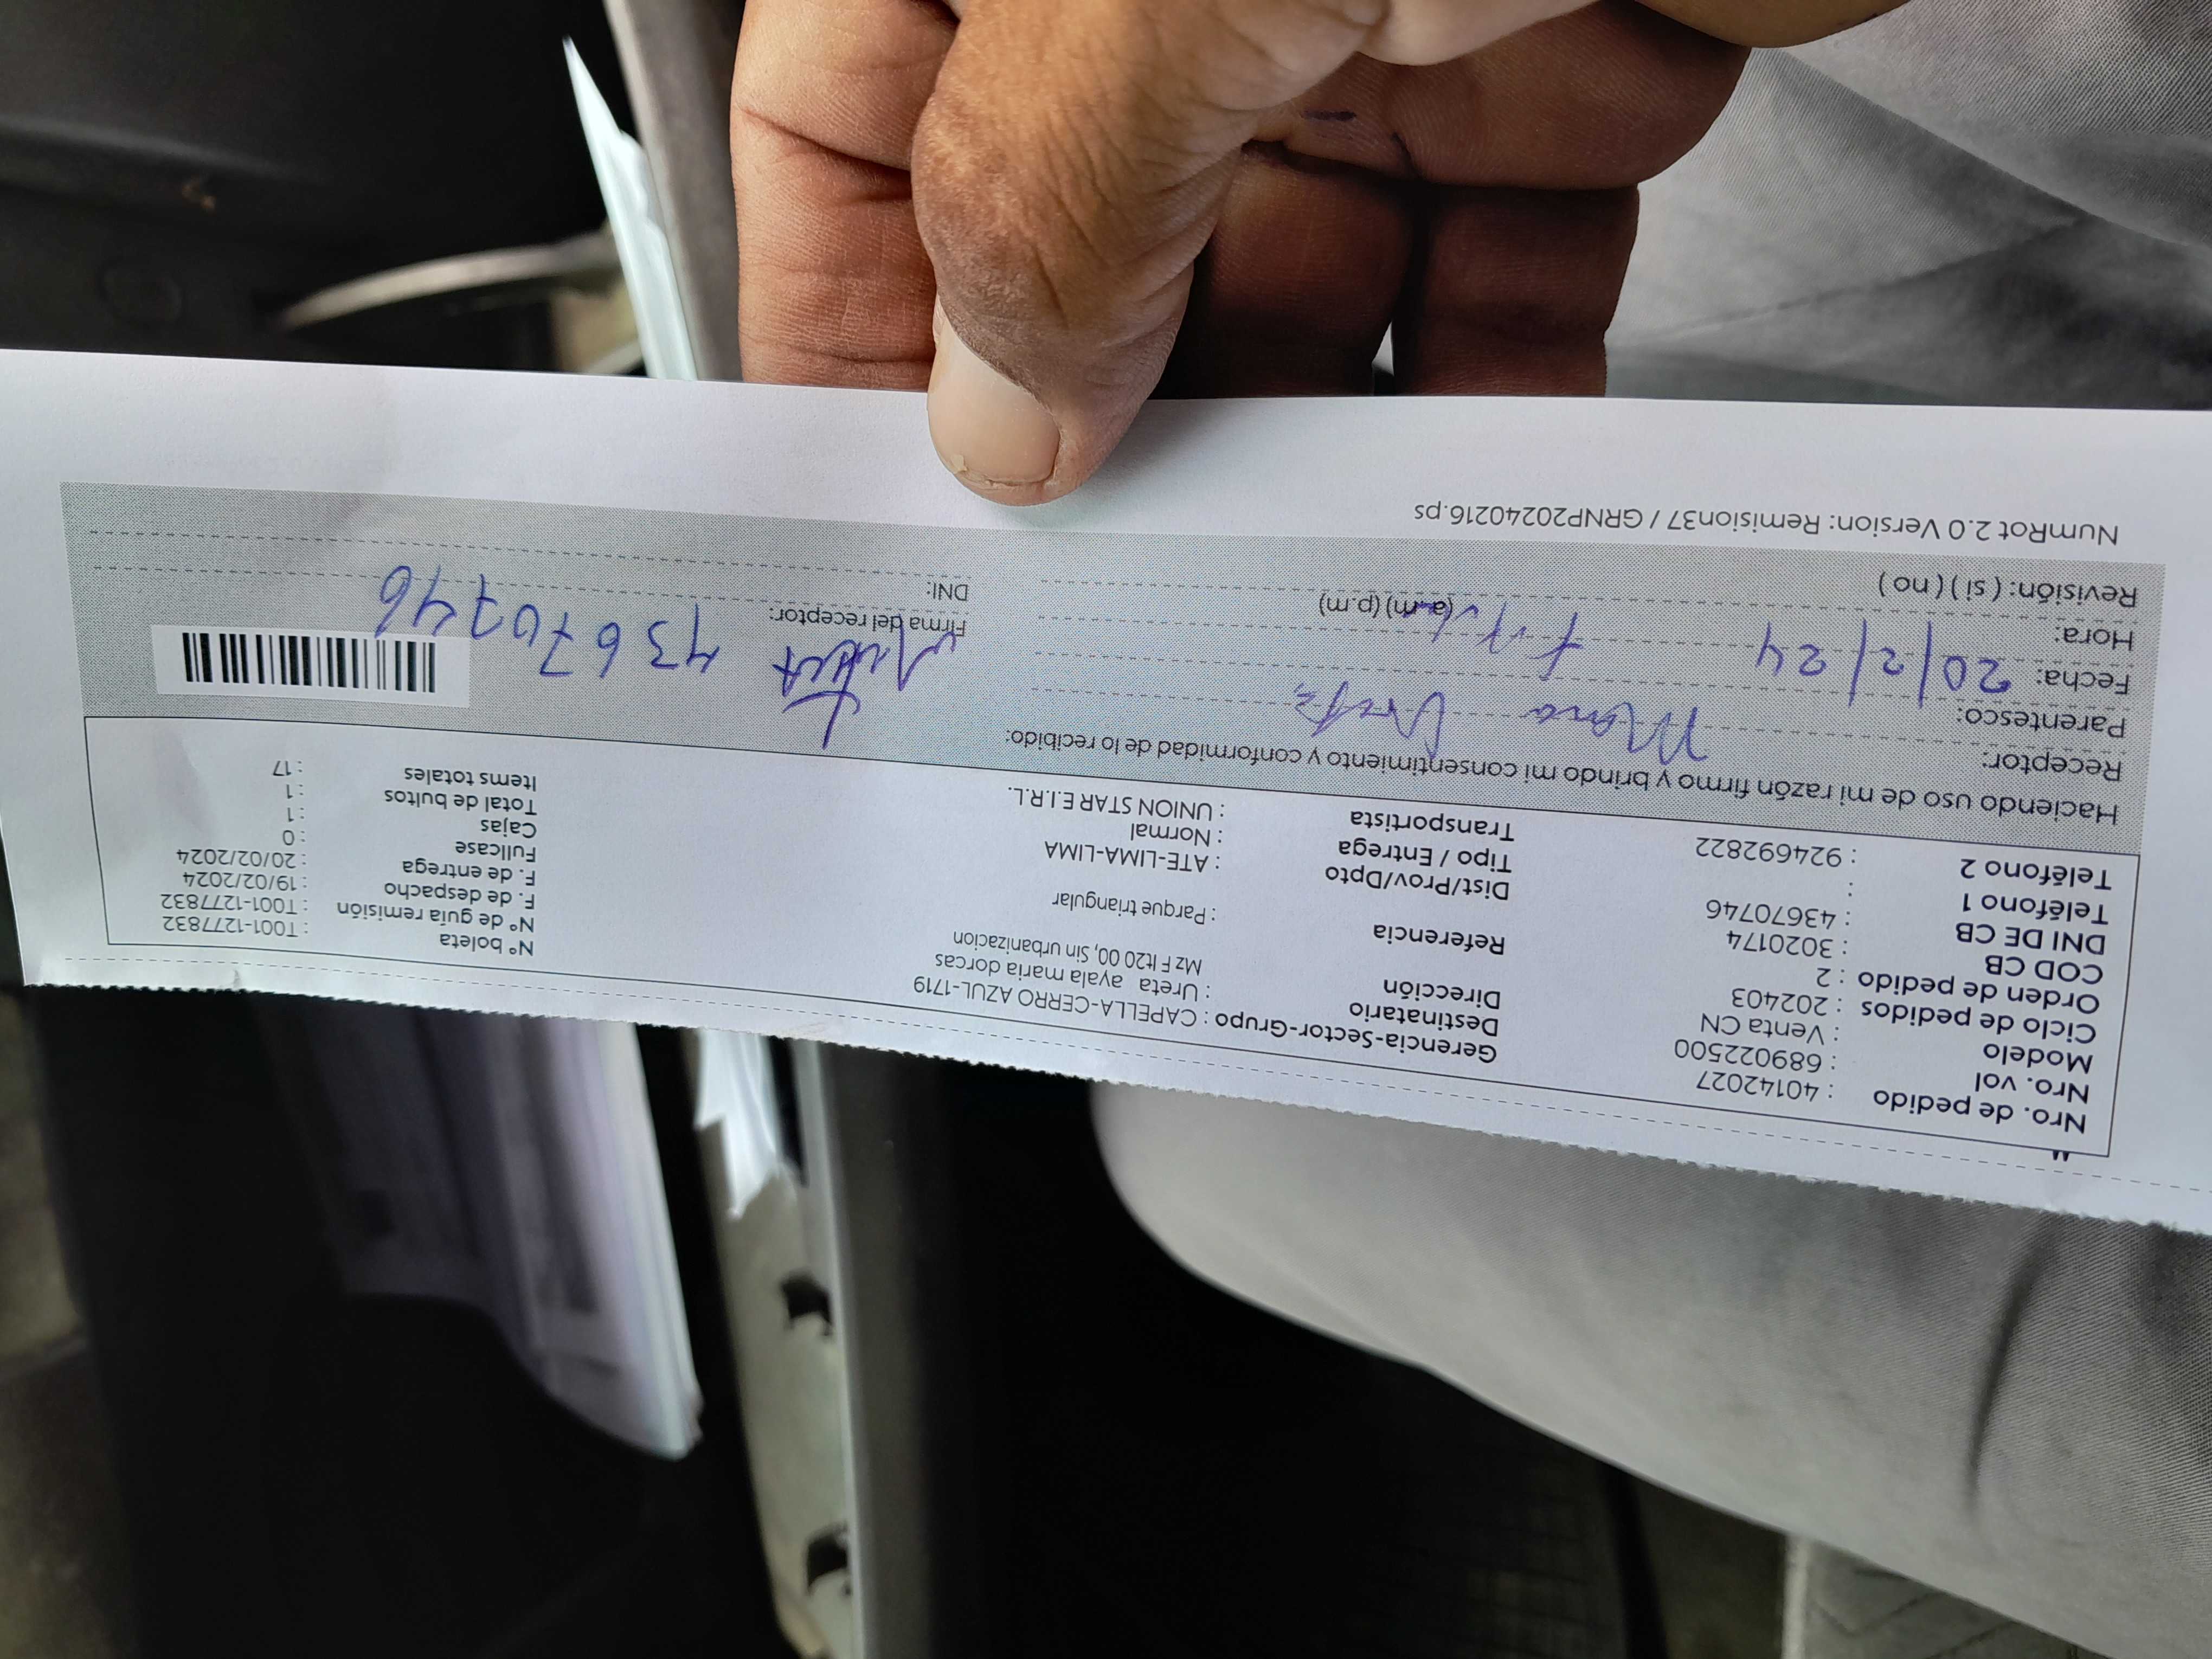 Nro. de pedido : 40142027
Nro. vol : 689022500
Modelo : Venta CN
Ciclo de pedidos : 202403
Orden de pedido : 2
COD CB : 3020174
DNI DE CB : 43670746
Teléfono 1 :
Teléfono 2 : 924692822
Gerencia-Sector-Grupo : CAPELLA-CERRO AZUL-1719
Destinatario : Ureta ayala maria dorcas
Dirección Mz F lt20 00, Sin urbanizacion
Referencia : Parque triangular
Dist/Prov/Dpto : ATE-LIMA-LIMA
Tipo / Entrega : Normal
Transportista : UNION STAR E.I.R.L.
N° boleta : T001-1277832
N° de guía remisión : T001-1277832
F. de despacho : 19/02/2024
F. de entrega : 20/02/2024
Fullcase : 0
Cajas : 1
Total de bultos : 1
Items totales : 17
Haciendo uso de mi razón firmo y brindo mi consentimiento y conformidad de lo recibido:
Receptor:
Parentesco:
Fecha: 20/2/24
Hora: (a.m) (p.m)
Revisión: ( si ) ( no )
Firma del receptor:
DNI: 43670746
NumRot 2.0 Version: Remision37 / GRNP20240216.ps